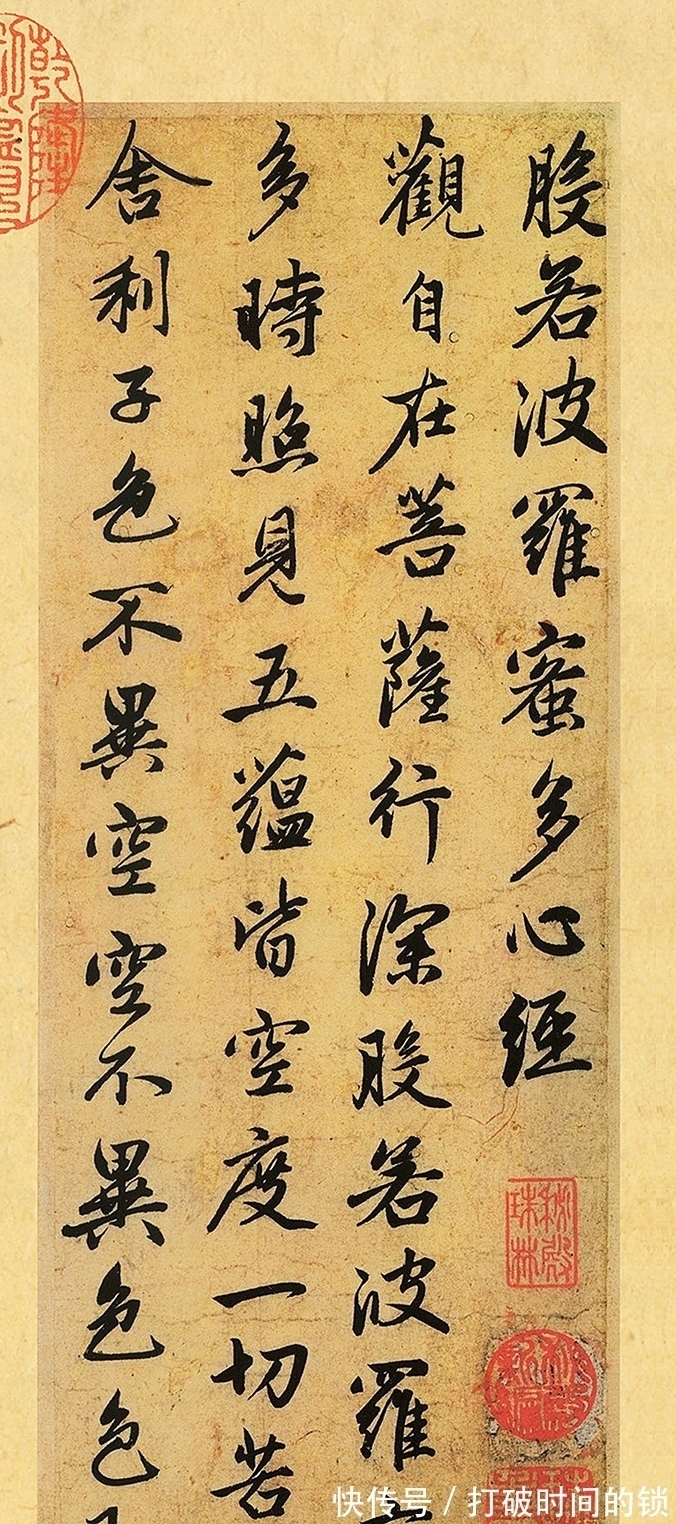 般若波羅蜜多心經
觀自在菩薩行深般若波羅
多時照見五蘊皆空度一切苦
舍利子色不異空空不異色色
秘殿珠林
快传号/打破时间的锁